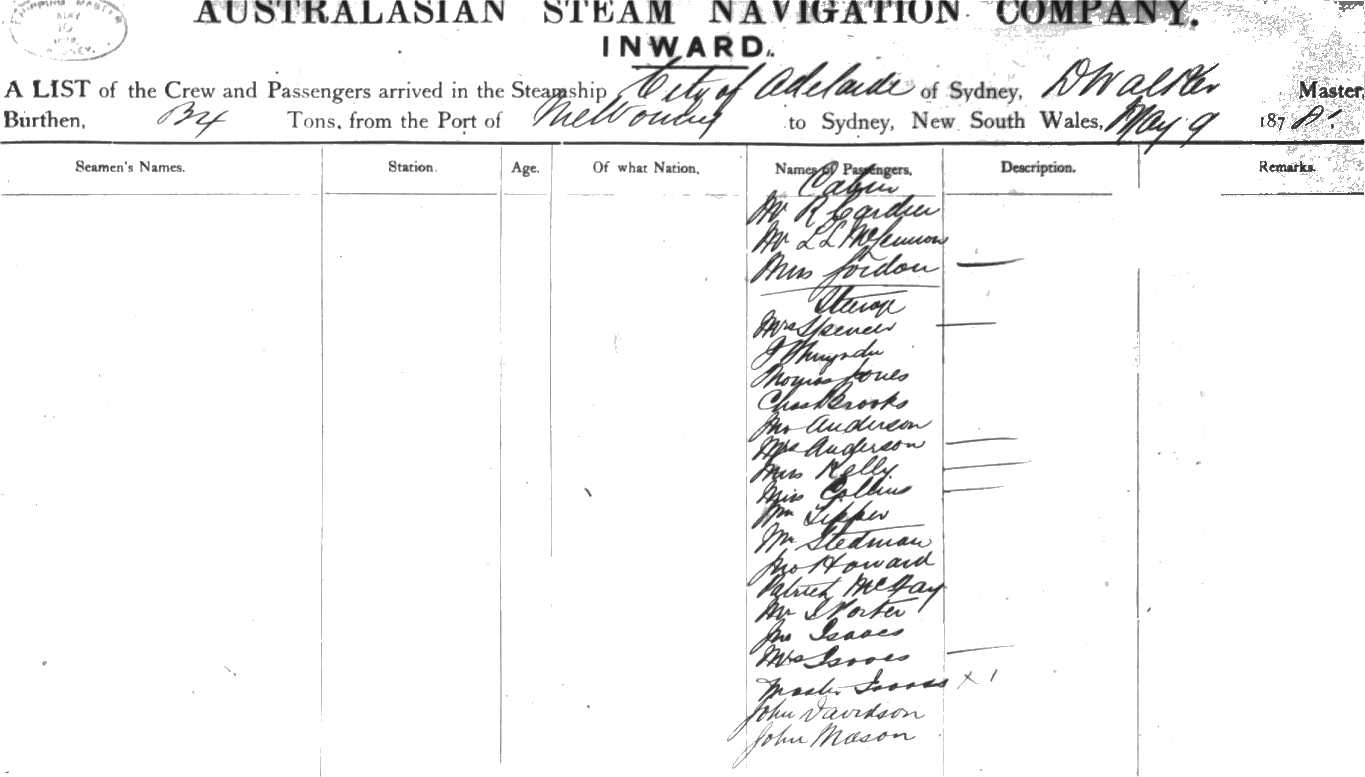 SHIPPING MASTER
MAY
10
SYDNEY.
AUSTRALASIAN STEAM NAVIGATION COMPANY.
INWARD.
A LIST of the Crew and Passengers arrived in the Steamship City of Adelaide of Sydney, D Walker Master,
Burthen, Tons, from the Port of Melbourne to Sydney, New South Wales, May 9 1878.
Seamen's Names. Station. Age. Of what Nation, Names of Passengers, Description. Remarks.
Cabin
Mr R
Mr L L
Miss Gordon
Steerage
Mrs Spencer
Thomas Jones
Chas Brooks
Jno Anderson
Mrs Anderson
Kelly
Miss Collins
Wm Tipper
Mr Stedman
Jno Howard
Patrick
Mr Porter
Jno Isaacs
Mrs Isaacs
Master Isaacs x 1
John Davidson
John Mason